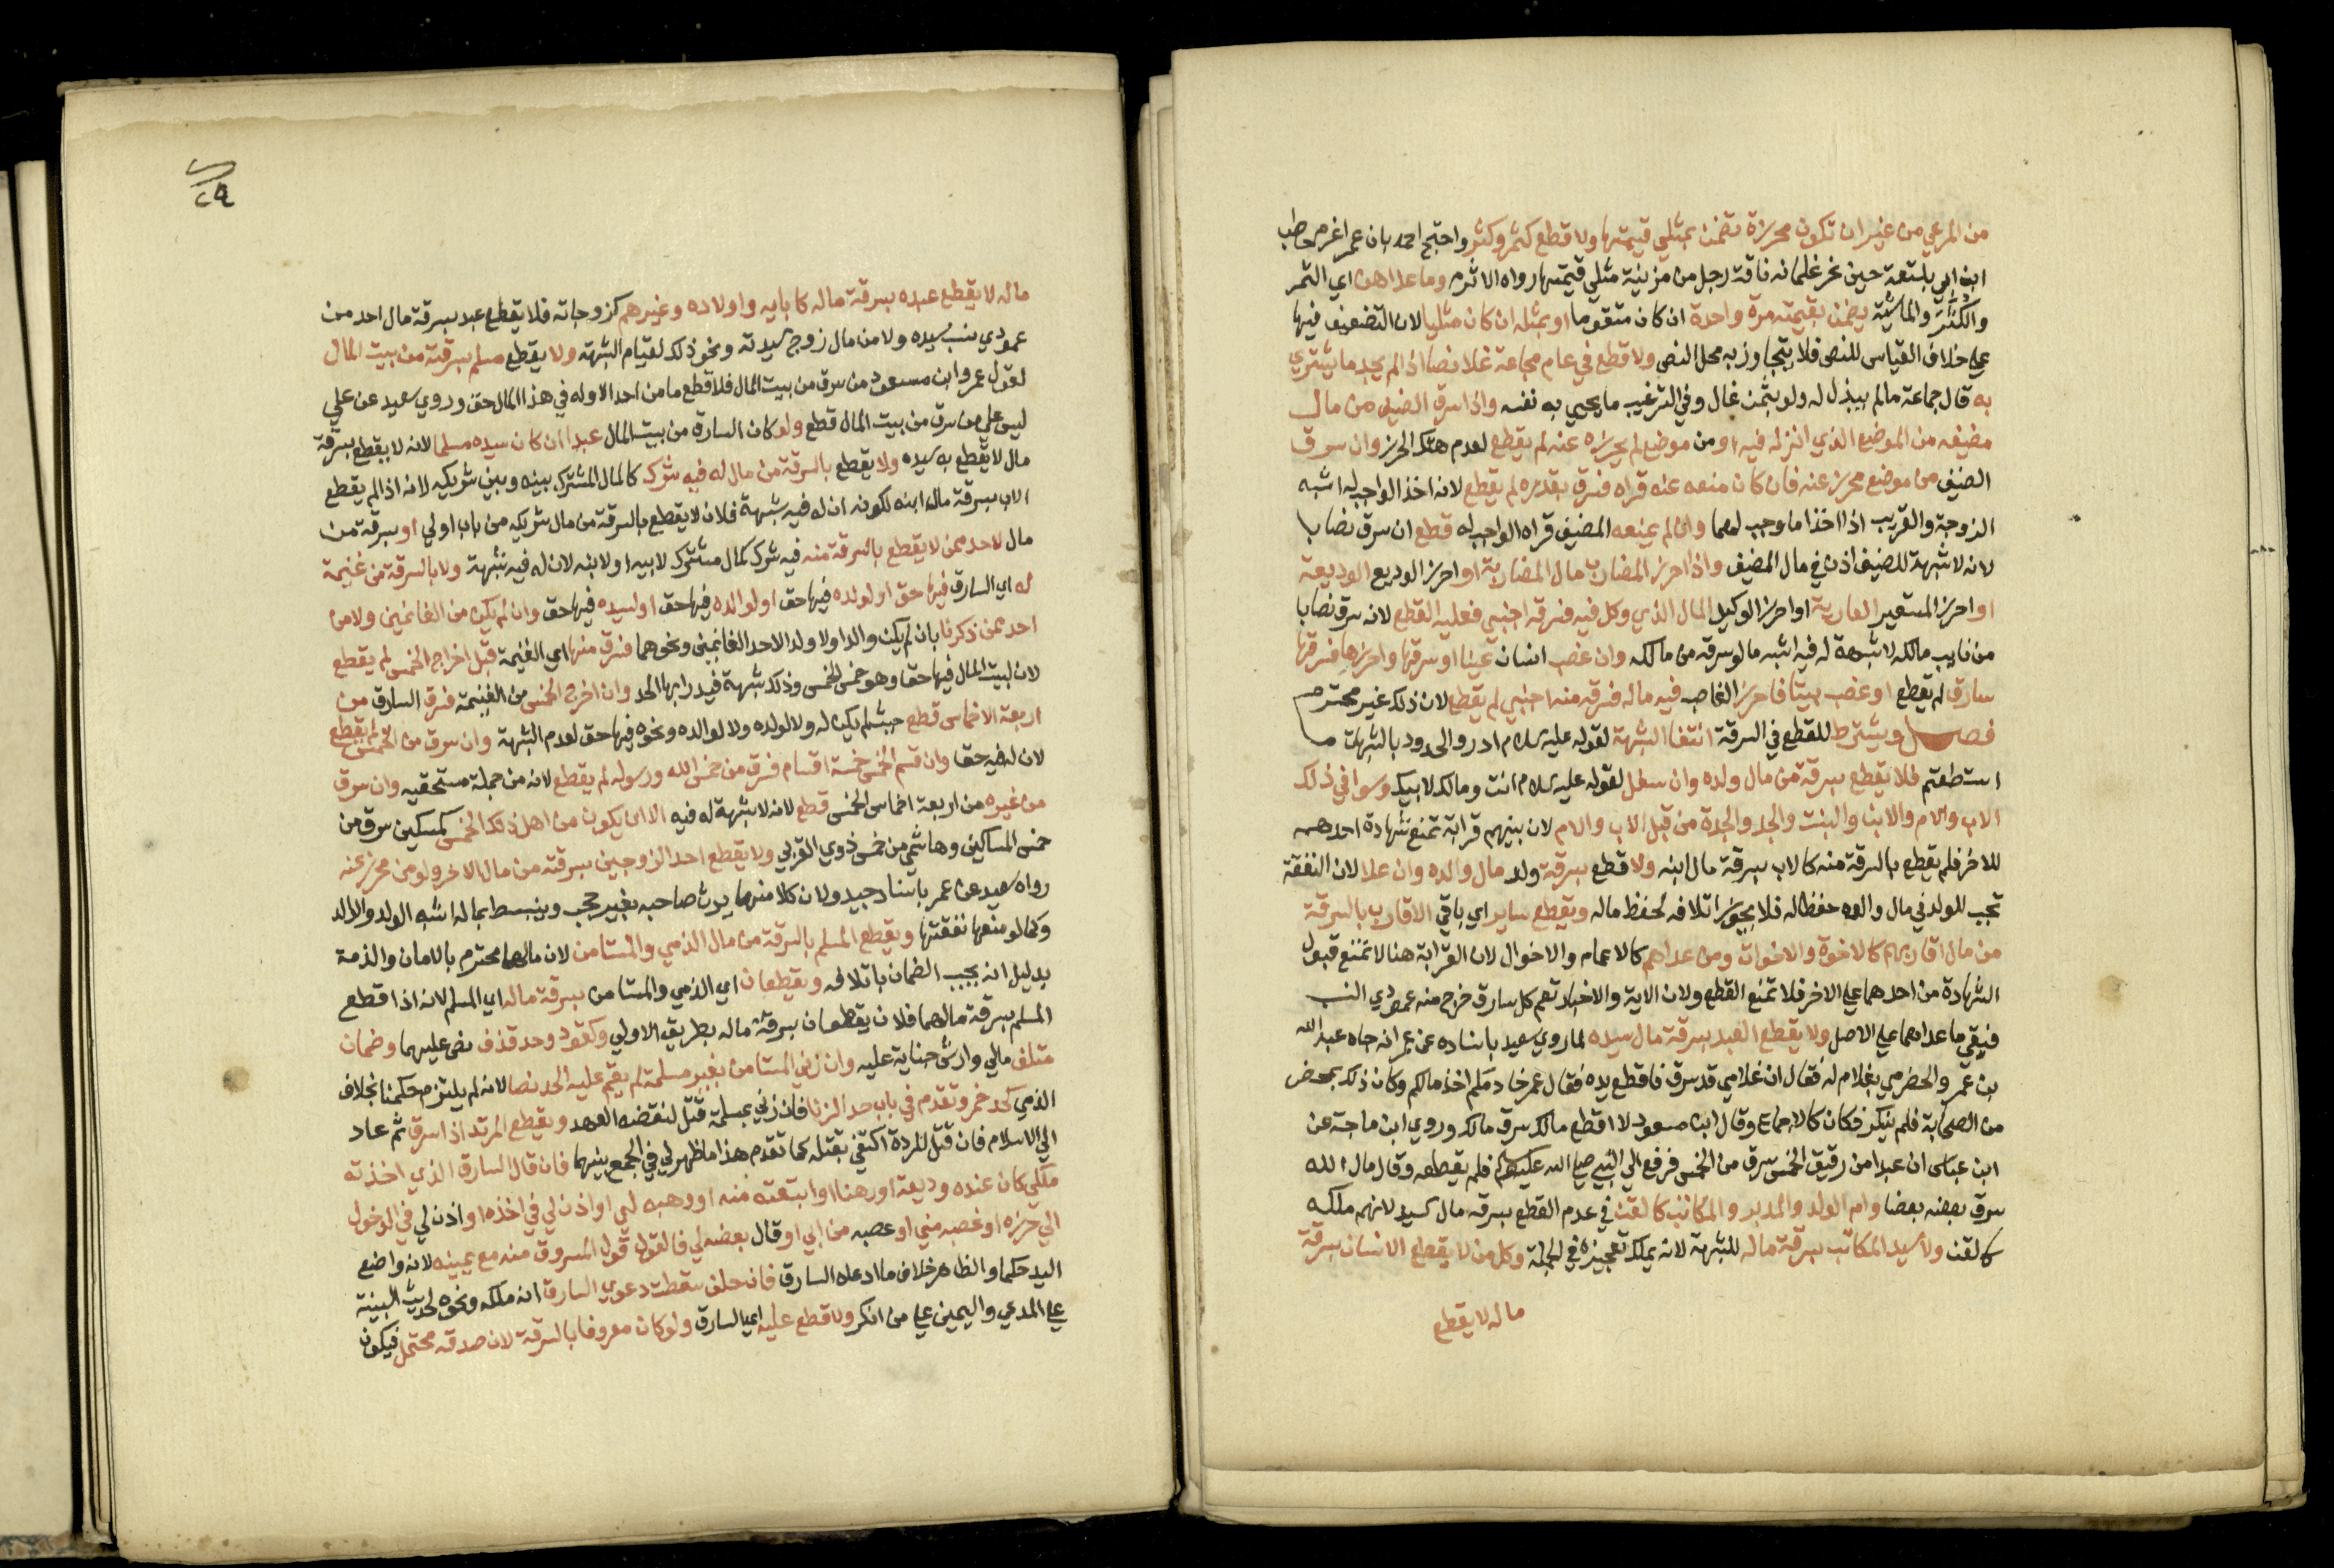 من المرعي من غير ان تكون محرزة تضمن بمثلي قيمتها ولا قطع كثمر وكثر واحتج احمد بان عمر اغرم حاطب
ابن ابي بلتعة حين نحر غلمانه ناقة رجل من مزينة مثلي قيمتها رواه الاثرم وما عداهن اي الثمر
والكثر والماشية يضمن بقيمته مرة واحدة ان كان متقوما او بمثله ان كان مثليا لان التضعيف فيها
على خلاف القياس للنص فلا يتجاوز به محل النص ولا قطع في عام مجاعة غلا نصا اذا لم يجد ما يشتري
به قال جماعة ما لم يبذل له ولو بثمن غال وفي الترغيب ما يحيي به نفسه واذا سرق الضيف من مال
مضيفه من الموضع الذي انزله فيه او من موضع لم يحرزه عنه لم يقطع لعدم هتك الحرز وان سرق
الضيف من موضع محرز عنه فان كان منعه عنه قراه فسرق بقدره لم يقطع لانه اخذ الواجب له اشبه
الزوجة والقريب اذا اخذا ما وجب لهما وان لم يمنعه المضيف قراه الواجب له قطع ان سرق نصابا
لانه لا شبهة للضيف اذن في مال المضيف واذا احرز المضارب مال المضاربة او احرز الوديع الوديعة
او احرز المستعير العارية او احرز الوكيل المال الذي وكل فيه فسرقه اجنبي فعليه القطع لانه سرق نصابا
من نايب مالكه لا شبهة له فيه اشبه ما لو سرقه من مالكه وان غصب انسان عينا او سرقها واحرزها فسرقها
سارق لم يقطع او غصب بيتا فاحرز الغاصب فيه ماله فسرقه منه اجنبي لم يقطع لان ذلك غير محترم
فصل ويشترط للقطع في السرقة انتفا الشبهة لقوله عليه السلام ادروا الحدود بالشبهات ما
استطعتم فلا يقطع بسرقة من مال ولده وان سفل لقوله عليه السلام انت ومالك لابيك وسوا في ذلك
الاب والام والابن والبنت والجد والجدة من قبل الاب والام لان بينهم قرابة تمنع شهادة احدهم
للاخر فلم يقطع بالسرقة منه كالاب بسرقة مال ابنه ولا قطع بسرقة ولد مال والده وان علا لان النفقة
تجب للولد في مال والده حفظا له فلا يجوز اتلافه لحفظ ماله ويقطع ساير اي باقي الاقارب بالسرقة
من مال اقاربهم كالاخوة والاخوات ومن عداهم كالاعمام والاخوال لان القرابة هنا لا تمنع قبول
الشهادة من احدهما على الاخر فلا تمنع القطع ولان الاية والاخبار تعم كل سارق خرج منه عمودي النسب
فبقي ما عداهما على الاصل ولا يقطع العبد بسرقة مال سيده لما روي سعيد باسناده عن عمر انه جاه عبد الله
بن عمر والحضرمي بغلام له فقال ان غلامي قد سرق فاقطع يده فقال عمر خادمكم اخذ مالكم وكان ذلك بمحضر
من الصحابة فلم ينكر فكان كالاجماع وقال ابن مسعود لا اقطع مالك سرق مالك وروي ابن ماجة عن
ابن عباس ان عبدا من رقيق الخمس سرق من الخمس فرفع الي النبي صلى الله عليه وسلم فلم يقطعه وقال مال الله
سرق بعضه بعضا وام الولد والمدبر والمكاتب كالقن في عدم القطع بسرقة مال سيد لانهم ملكه
كالقن ولا سيد المكاتب بسرقة ماله للشبهة لانه يملك تعجيزه في الجملة وكل من لا يقطع الانسان بسرقة
ماله لا يقطع
ماله لا يقطع عبده بسرقة ماله كابايه واولاده وغيرهم كزوجاته فلا يقطع عبد بسرقة مال احد من
عمودي نسب سيده ولا من مال زوج سيدته ونحو ذلك لقيام الشبهة ولا يقطع مسلم بسرقته من بيت المال
لقول عمر وابن مسعود من سرق من بيت المال فلا قطع ما من احد الا وله في هذا المال حق وروي سعيد عن علي
ليس على من سرق من بيت المال قطع ولو كان السارق من بيت المال عبدا ان كان سيده مسلما لانه لا يقطع بسرقة
مال لا يقطع به سيده ولا يقطع بالسرقة من مال له فيه شرك كالمال المشترك بينه وبين شريكه لانه اذا لم يقطع
الاب بسرقة مال ابنه لكونه ان له فيه شبهة فلان لا يقطع بالسرقة من مال شريكه من باب اولي او بسرقة من
مال لاحد ممن لا يقطع بالسرقة منه فيه شرك كمال مشترك لابيه او لابنه لان له فيه شبهة ولا بالسرقة من غنيمة
له اي السارق فيها حق او لولده فيها حق او لوالده فيها حق او لسيده فيها حق وان لم يكن من الغانمين ولا من
احد ممن ذكرنا بان لم يكن والدا ولا ولد الاحد الغانمين ونحوهما فسرق منها اي الغنيمة قبل اخراج الخمس لم يقطع
لان لبيت المال فيها حقا وهو خمس الخمس وذلك شبهة فيدرا بها الحد وان اخرج الخمس من الغنيمة فسرق السارق من
اربعة الاخماس قطع حيث لم يكن له ولا لولده ولا لوالده ونحوه فيها حق لعدم الشبهة وان سرق من الخمس لم يقطع
لان له فيه حقا وان قسم الخمس خمسة اقسام فسرق من خمس الله ورسوله لم يقطع لانه من جملة مستحقيه وان سرق
من غيره من اربعة اخماس الخمس قطع لانه لا شبهة له فيه الا ان يكون من اهل ذلك الخمس كمسكين سرق من
خمس المساكين وهاشمي من خمس ذوي القربي ولا يقطع احد الزوجين بسرقته من مال الاخر ولو من محرز عنه
رواه سعيد عن عمر باسناد جيد ولان كلا منهما يرث صاحبه بغير حجب وينبسط بماله اشبه الولد والوالد
وكما لو منعها نفقتها ويقطع المسلم بالسرقة من مال الذمي والمستامن لان مالهما محترم بالامان والذمة
بدليل انه يجب الضمان باتلافه ويقطعان اي الذمي والمستامن بسرقة ماله اي المسلم لانه اذا قطع
المسلم بسرقة مالهما فلان يقطعان بسرقة ماله بطريق الاولي وكقود وحد قذف نص عليهما وضمان
متلف مالي وارش جناية عليه وان زني المستامن بغير مسلمة لم يقم عليه الحد نصا لانه لم يلتزم حكمنا بخلاف
الذمي كحد خمر وتقدم في باب حد الزنا فان زني بمسلمة قتل لنقضه العهد ويقطع المرتد اذا سرق ثم عاد
الي الاسلام فان قتل للردة اكتفي بقتله كما تقدم هذا ما ظهر لي في الجمع بينهما فان قال السارق الذي اخذته
ملكي كان عنده وديعة او رهنا او ابتعته منه او وهبه لي او اذن لي في اخذه او اذن لي في الدخول
الي حرزه او غصبه مني او غصبه من ابي او قال بعضه لي فالقول قول المسروق منه مع يمينه لانه واضع
اليد حكما والظاهر خلاف ما ادعاه السارق فان حلف سقطت دعوي السارق انه ملكه ونحوه لحديث البينة
على المدعي واليمين على من انكر ولا قطع عليه اي السارق ولو كان معروفا بالسرقة لان صدقه محتمل فيكون